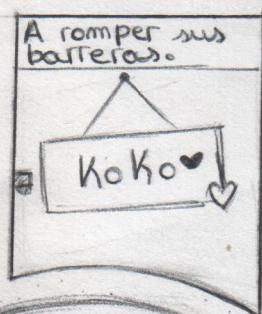 A romper sus
barreras.
KoKo♥